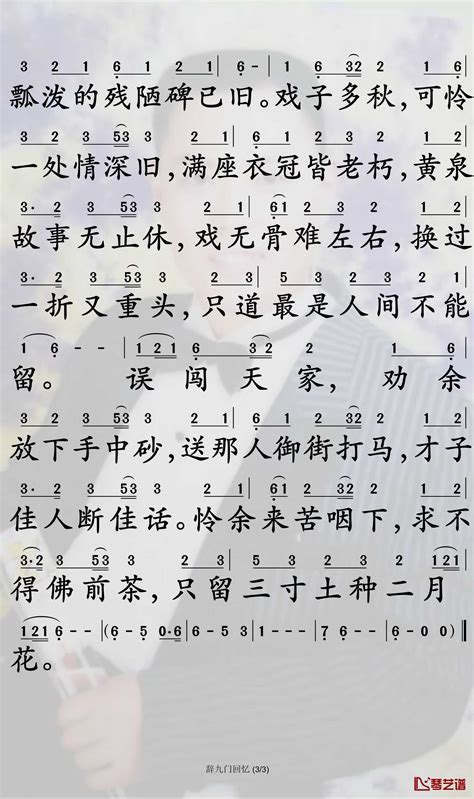 3 2 1 6 1 2 1 | 6 - | 1 6 1 6 32 2 1 6
瓢泼的残陋碑已旧。戏子多秋,可怜
3 2 3 53 3 2 1 61 2 32 3 2 1 2
一处情深旧,满座衣冠皆老朽,黄泉
3· 2 3 53 3 2 1 61 2 32 2 1 2
故事无止休,戏无骨难左右,换过
3· 2 3 53 3 3 2 3 5 3 2 2 1 2
一折又重头,只道最是人间不能
1 6 - - 1 1 6 32 2 1 6
留。 误闯天家,劝余
3 2 3 53 3 2 1 61 2 32 3 2 1 2
放下手中砂,送那人御街打马,才子
3· 2 3 53 3 2 1 61 2 32 2 1 2
佳人断佳话。怜余来苦咽下,求不
3· 2 3 53 3 3 2 3 5 3 2 2 121
得佛前茶,只留三寸土种二月
121 6 - - (6 - 5 0·6 6 - 5 3 1 - - - 7 6 - - 6 - - -)
花。
辞九门回忆 (3/3)
琴艺谱